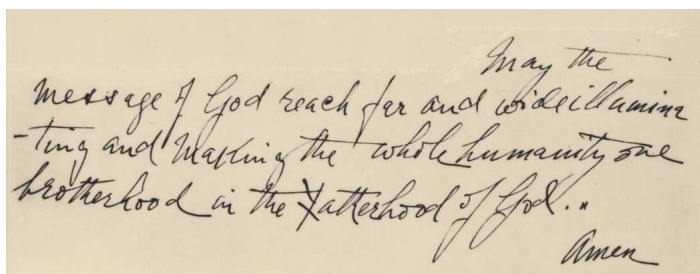 May the
message of God reach far and wide illumina
-ting and making the whole humanity one
brotherhood in the Fatherhood of God..
Amen